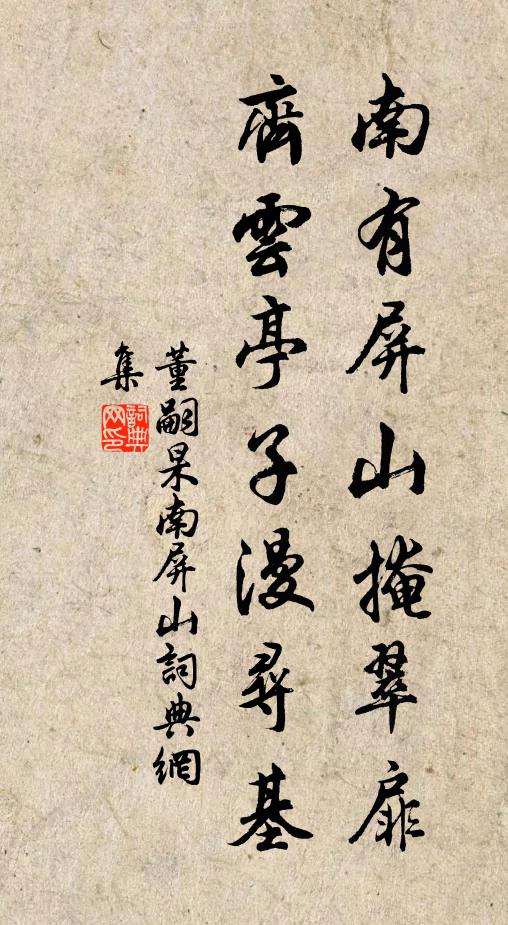 南有屏山掩翠扉
齊雲亭子漫尋基
董嗣杲南屏山詞典網
集
詞典網印